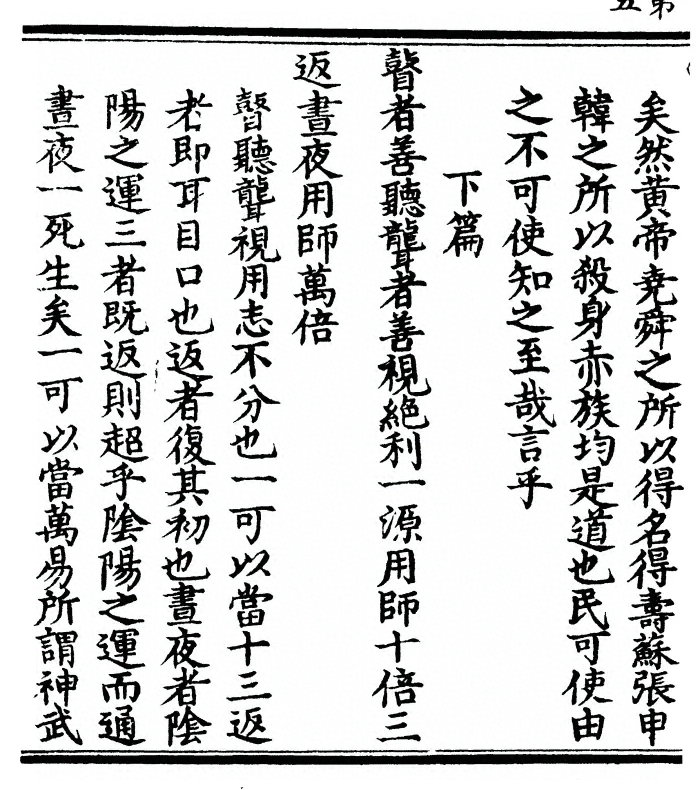 第五
矣然黄帝堯舜之所以得名得壽蘇張申
韓之所以殺身赤族均是道也民可使由
之不可使知之至哉言乎
下篇
瞽者善聽聾者善視絕利一源用師十倍三
返晝夜用師萬倍
瞽聽聾視用志不分也一可以當十三返
者即耳目口也返者復其初也晝夜者陰
陽之運三者既返則超乎陰陽之運而通
晝夜一死生矣一可以當萬易所謂神武